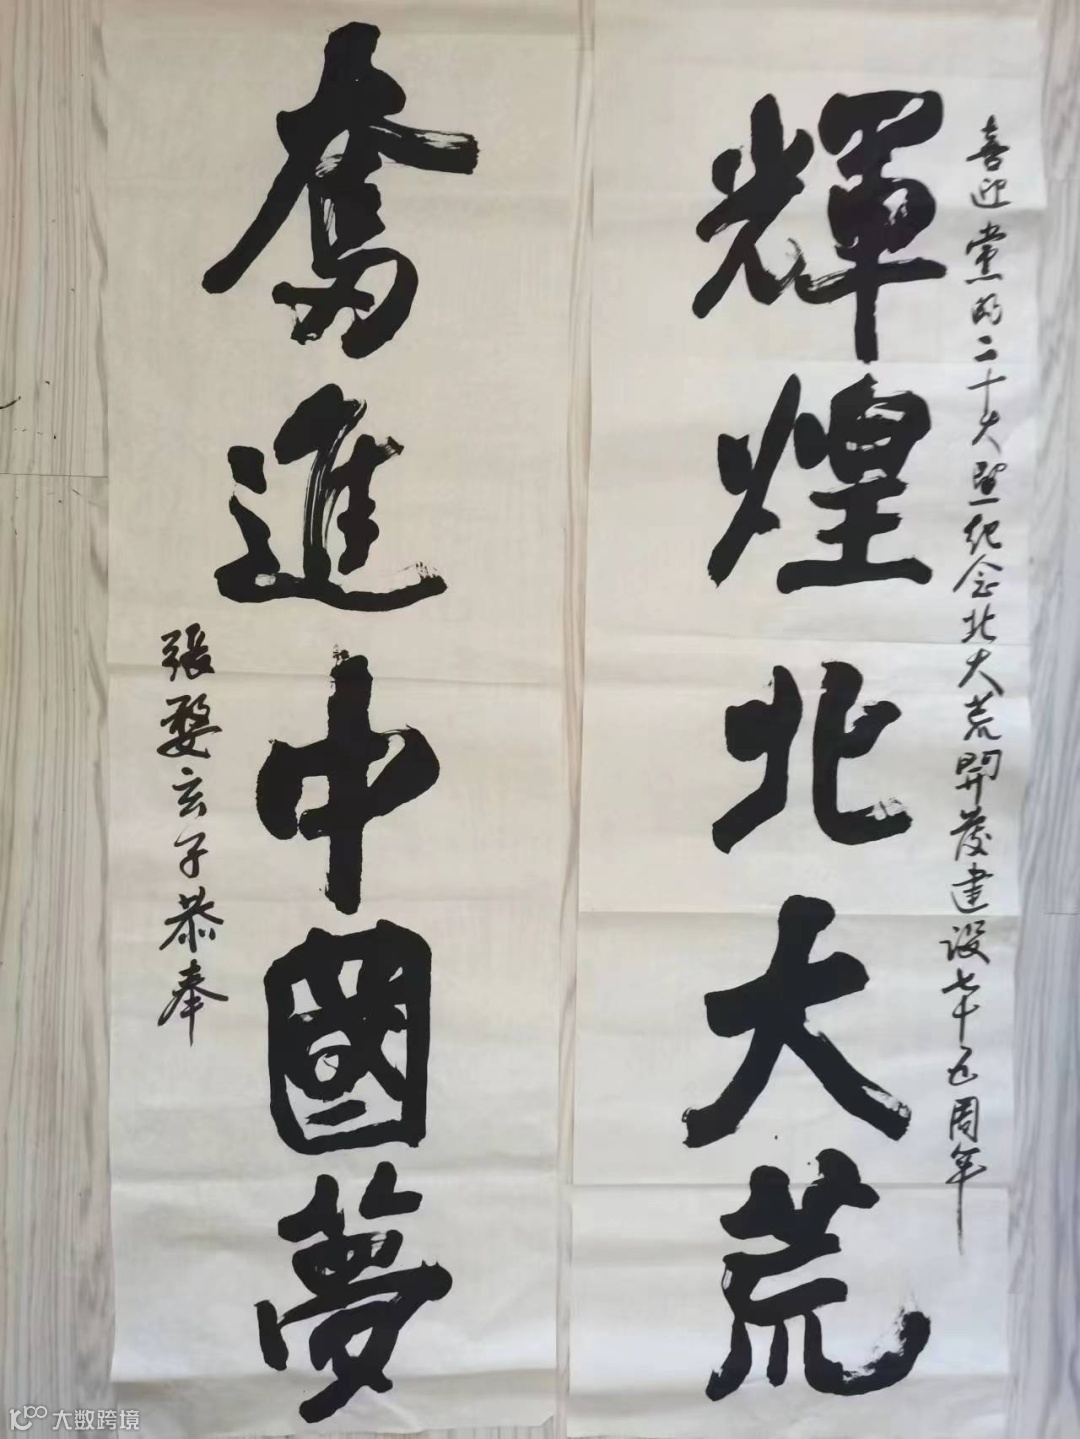 喜迎党的二十大暨纪念北大荒開發建设七十五周年
輝煌北大荒
奮進中國夢
張婺玄子恭奉
大数跨境